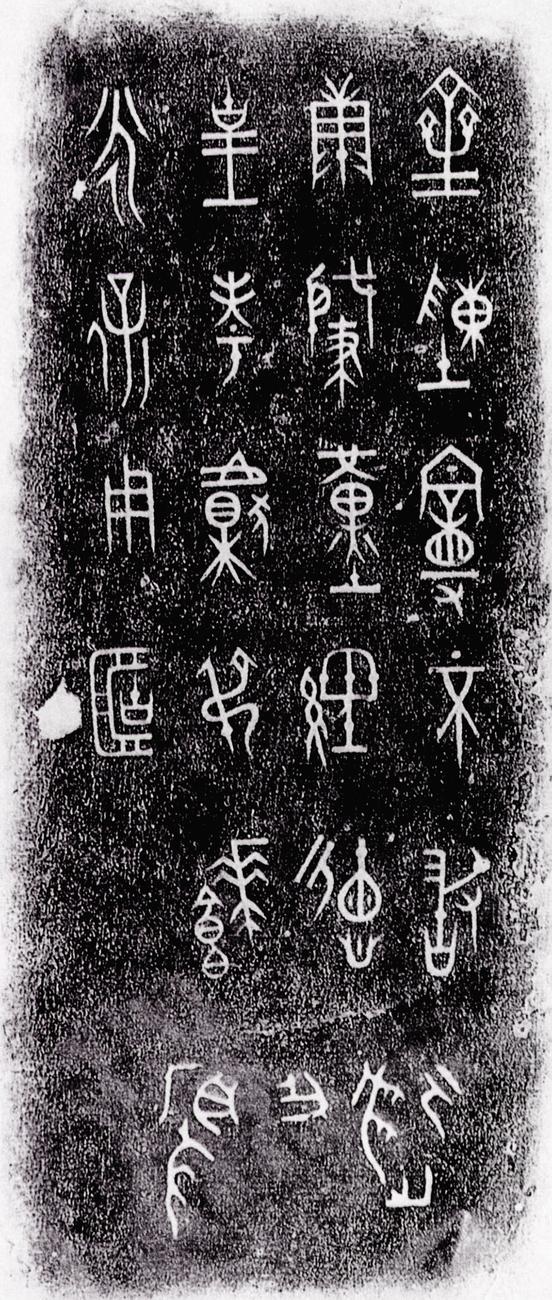 齊陳曼不敢逸
康肇堇經德乍
皇考獻弔饙
永保用𠤳